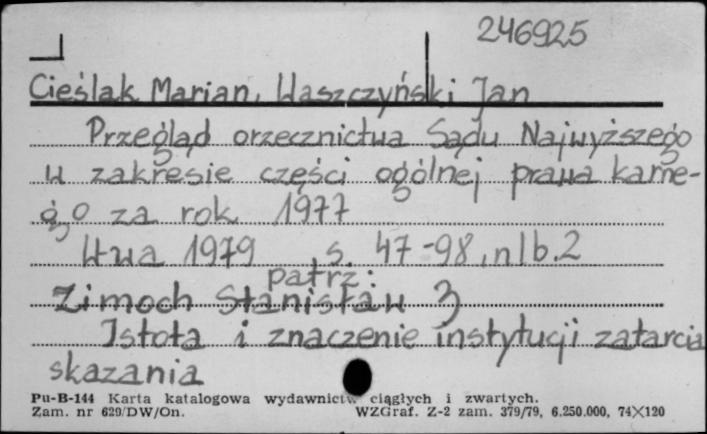 246925
Cieślak Marian, Waszczyński Jan
Przegląd orzecznictwa Sądu Najwyższego
w zakresie części ogólnej prawa karne-
go za rok 1977
W-wa 1979 s. 47-98, nlb. 2
patrz:
Zimoch Stanisław 3
Istota i znaczenie instytucji zatarcia
skazania
Pu-B-144 Karta katalogowa wydawnictw ciągłych i zwartych.
Zam. nr 629/DW/On. WZGraf. Z-2 zam. 379/79, 6.250.000, 74×120